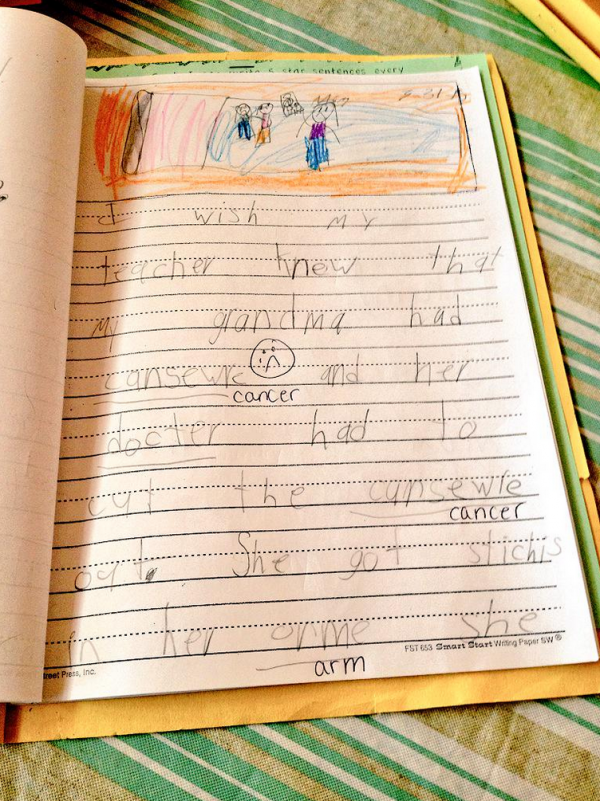 write 5 star sentences every
I wish my
teacher knew that
my grandma had
cansewre and her
cancer
docter had to
cut the cunsewre
cancer
out. She got stichis
in her orme she
arm
FST 653 Smart Start Writing Paper SW®
treet Press, Inc.